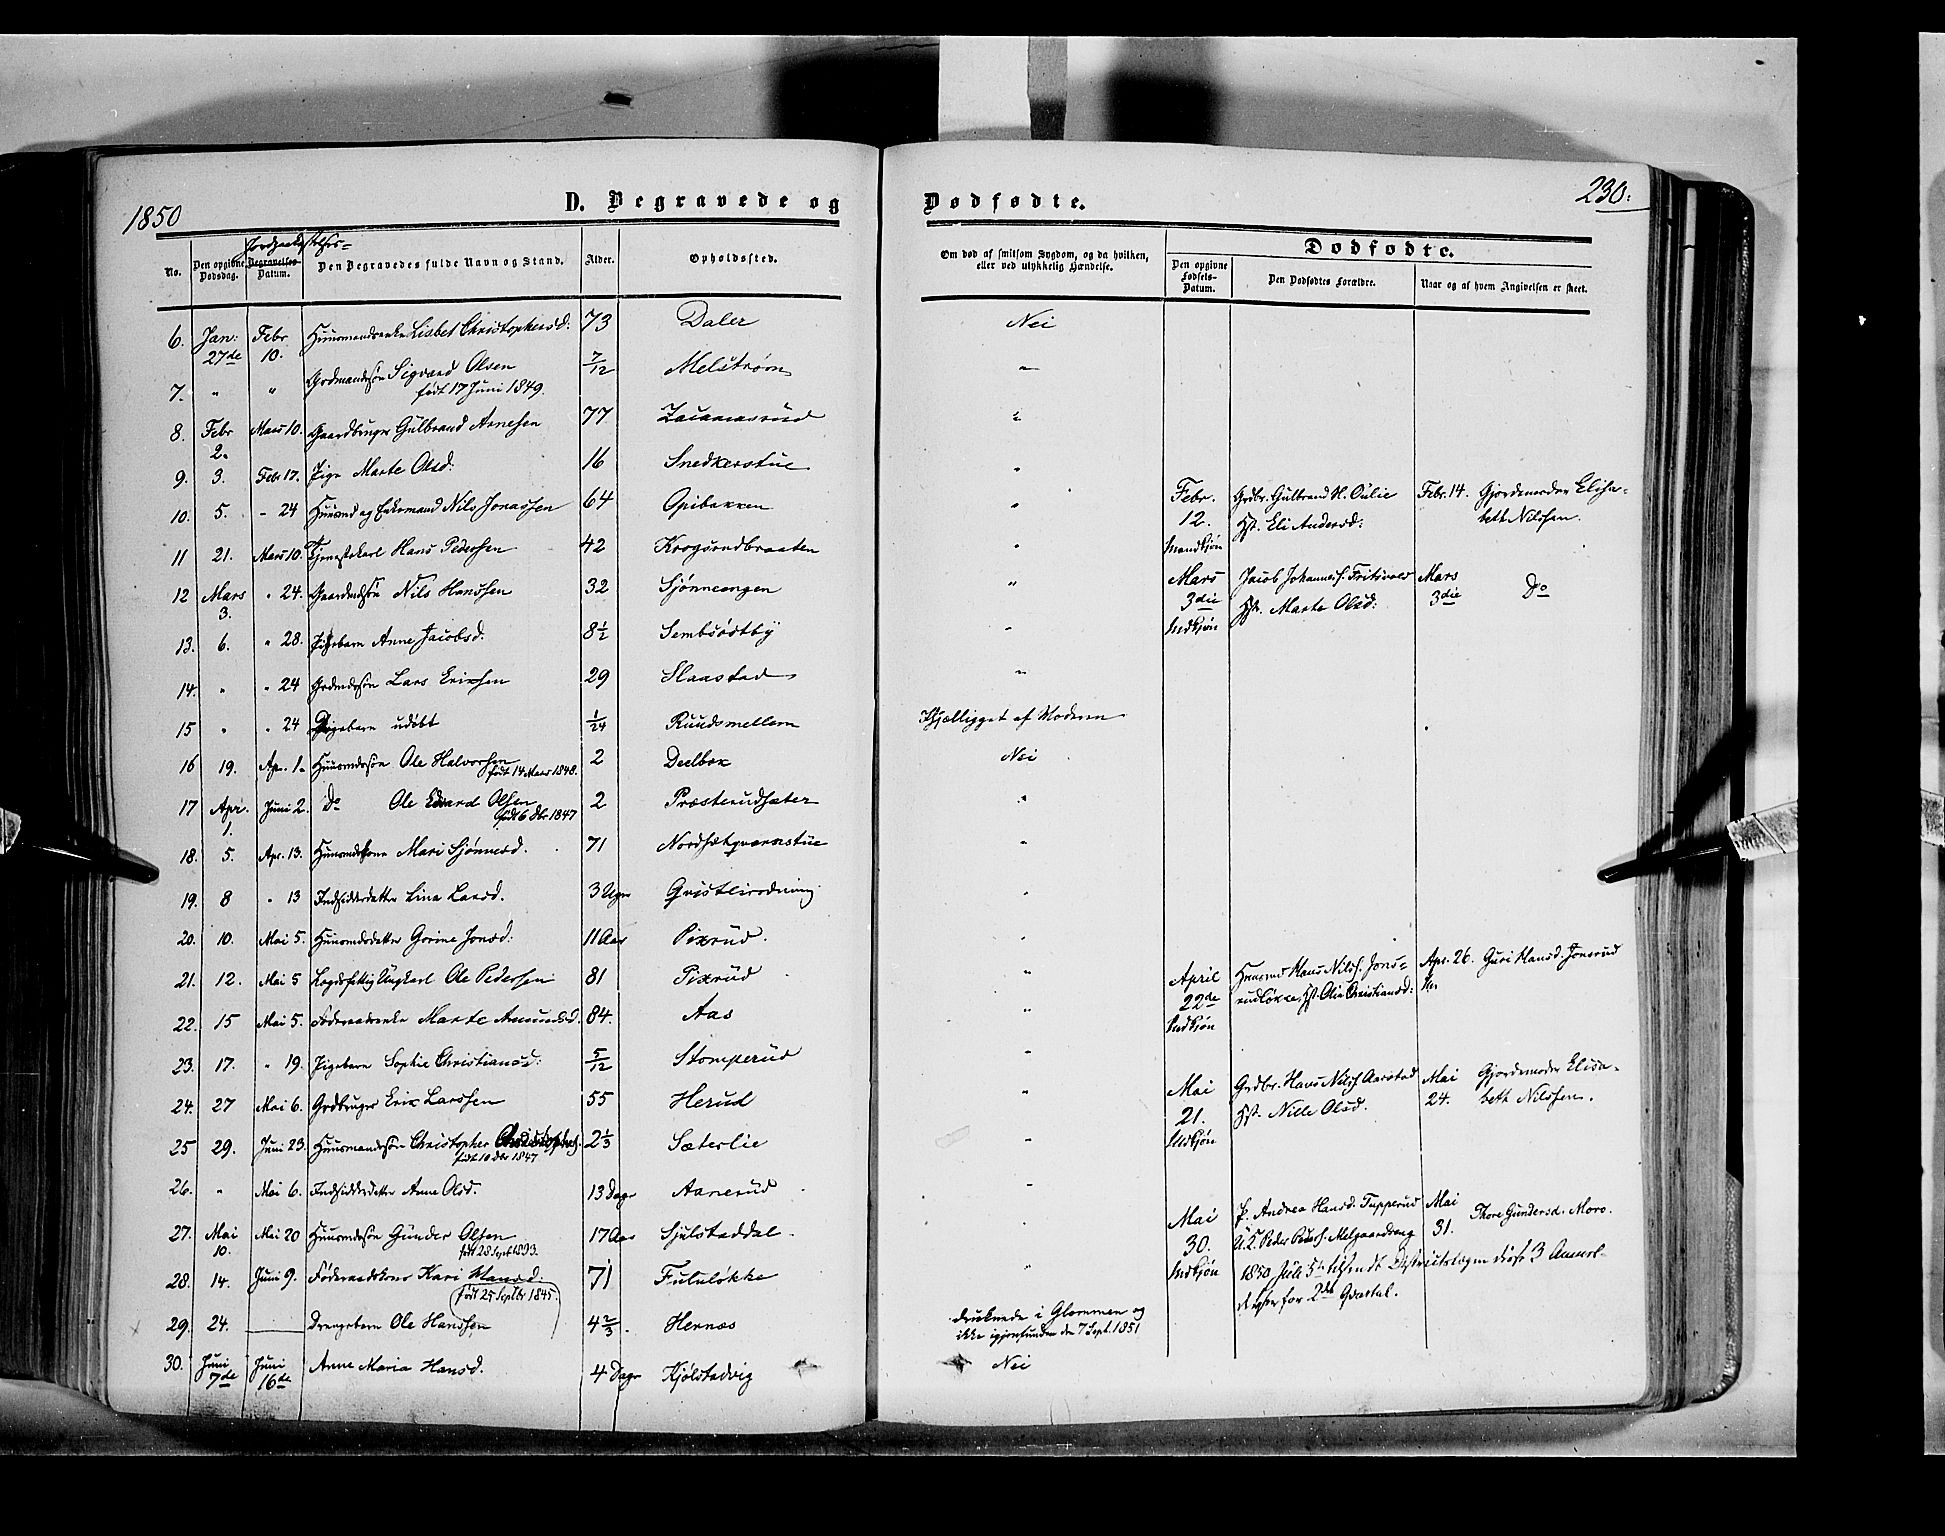 1850
D. Begravede og Dødfødte.
230.
Jordpaakastelses-
No. Den opgivne Dødsdag. Begravelses Datum. Den Begravedes fulde Navn og Stand. Alder. Opholdssted. Om død af smitsom Sygdom, og da hvilken, eller ved ulykkelig Hændelse.
Dødfødte.
Den opgivne Fødsels-Datum. Den Dødfødtes Forældre. Naar og af hvem Angivelsen er skeet.
6. Jan: 27de Febr 10. Huusmandsenke Lisbet Christophersd: 73 Daler Nei
7. " " Grdmandssøn Sigvard Olsen 7/12 Melstrøm "
født 17 Juni 1849.
8. Febr 2. Mars 10. Gaardbruger Gulbrand Arnesen 77 "
9. 3. Febr 17. Pige Marte Olsd. 16 Snedkerstue "
10. 5. - 24 Huusmd og Enkemand Nils Jonassen 64 Opibakken "
Febr. 12. Mandkjøn Grdbr. Gulbrand N. Oulie Hst. Eli Andersd: Febr. 14. Gjordemoder Elisabeth Nilssen.
11 21. Mars 10. Tjenestekarl Hans Pedersen 42 Krogsrudbraaten "
12 Mars 3. " 24. Gaardmdssøn Nils Hanssen 32 Sjønneengen "
Mars 3die Mdkjøn Jacob Johannes. Hst. Marte Olsd: Mars 3die Do
13. 6. " 28. Pigebarn Anne Jacobsd. 8½ Sembsødstby "
14. " " 24 Grdmdssøn Lars Erixsen 29 Slaastad "
15 " " 24 Pigebarn udøbt 1/24 Ruudsmellem Ihjelligget af Moderen
16 19. Ap. 1. Huusmdssøn Ole Halvorsen 2 Deelbæk Nei
født 14 Mars 1848.
17 Apr. 1. Juni 2. do Ole Edvard Olsen 2 Præsterudsæter "
født 6 Dbr 1847
18. 5. Apr. 13. Huusmdskone Mari Sjønnesd. 71 Nordsetqvernstue "
19. 8 " 13 Indsidderdatter Lina Larsd. 3 Uger "
20. 10. Mai 5. Huusmdsdatter Gorine Jonsd: 11 Aar Pixrud. "
21. 12. Mai 5 Lægdsfattig Ungkarl Ole Pedersen 81 Pixrud "
April 22de Mdkjøn Huusmd Hans Nilss. Jonsrudløkke, Hst. Olia Christiansd: Apr. 26. Guri Hansd. Jonsrud
22. 15 Mai 5. Føderaadsenke Marte Amundsd. 84. Aas "
23. 17. " 19. Pigebarn Sophie Christiansd: 5/12 Stomperud "
24. 27 Mai 6. Grdbruger Erik Larssen 55 Herud "
Mai 21. Mdkjøn Grdbr. Hans Nilss Aarstad Hst. Nille Olsd. Mai 24. Gjordemoder Elisabeth Nilssen.
25 29. Juni 23. Huusmandssøn Christopher 2⅓ Sæterlie "
født 10 Dbr 1847
26. " Mai 6. Indsidderdatter Anne Olsd. 13 Dage Aanerud "
27. Mai 10. Mai 20 Huusmdssøn Gunder Olsen 17 Aar Sjulstaddal. "
28. 14. Juni 9. Føderaadskone Kari Hansd: 71 Fululøkke "
Mai 30. Mdkjøn P. Andrea Hansd. Tupperud U.K. Peder Peders. Melgaardseng Mai 31. Thore Gundersd. Moro.
1850 Juli 5te tilsendt Districtslægen disse 3 Anmeldelser for 2det Qvartal.
født 25 Septbr 1845.
29. 24. Drengebarn Ole Hanssen 4⅔. Hernæs druknede i Glommen og ikke igjenfunden den 7 Sept. 1851
30. Juni 7de Juni 16de Anne Maria Hansd. 4 Dage Kjølstadvig Nei